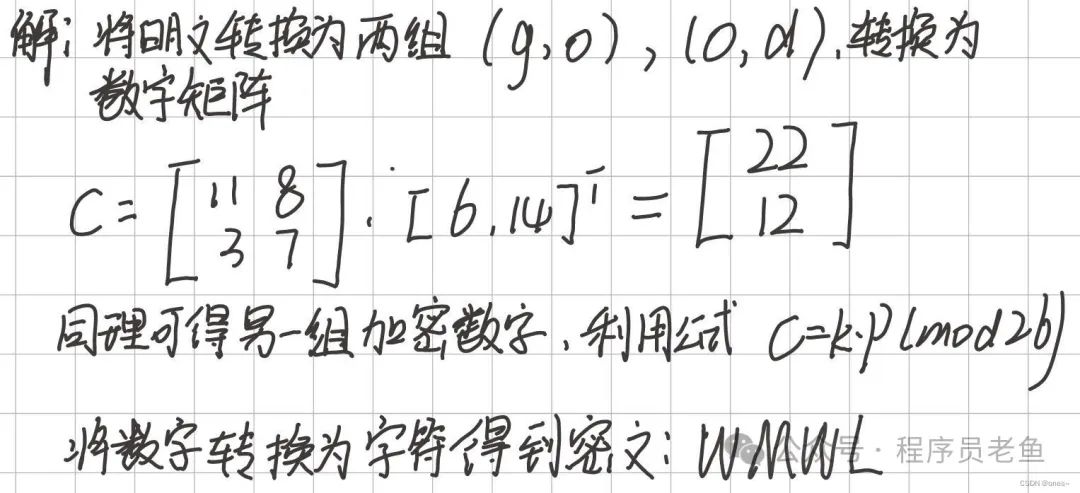 解: 将明文转换为两组 (g,o), (o,d).转换为
数字矩阵
C = [11 8; 3 7] · [6,14]ᵀ = [22; 12]
同理可得另一组加密数字,利用公式 C=k·P(mod26)
将数字转换为字符得到密文: WMWL
公众号·程序员老鱼